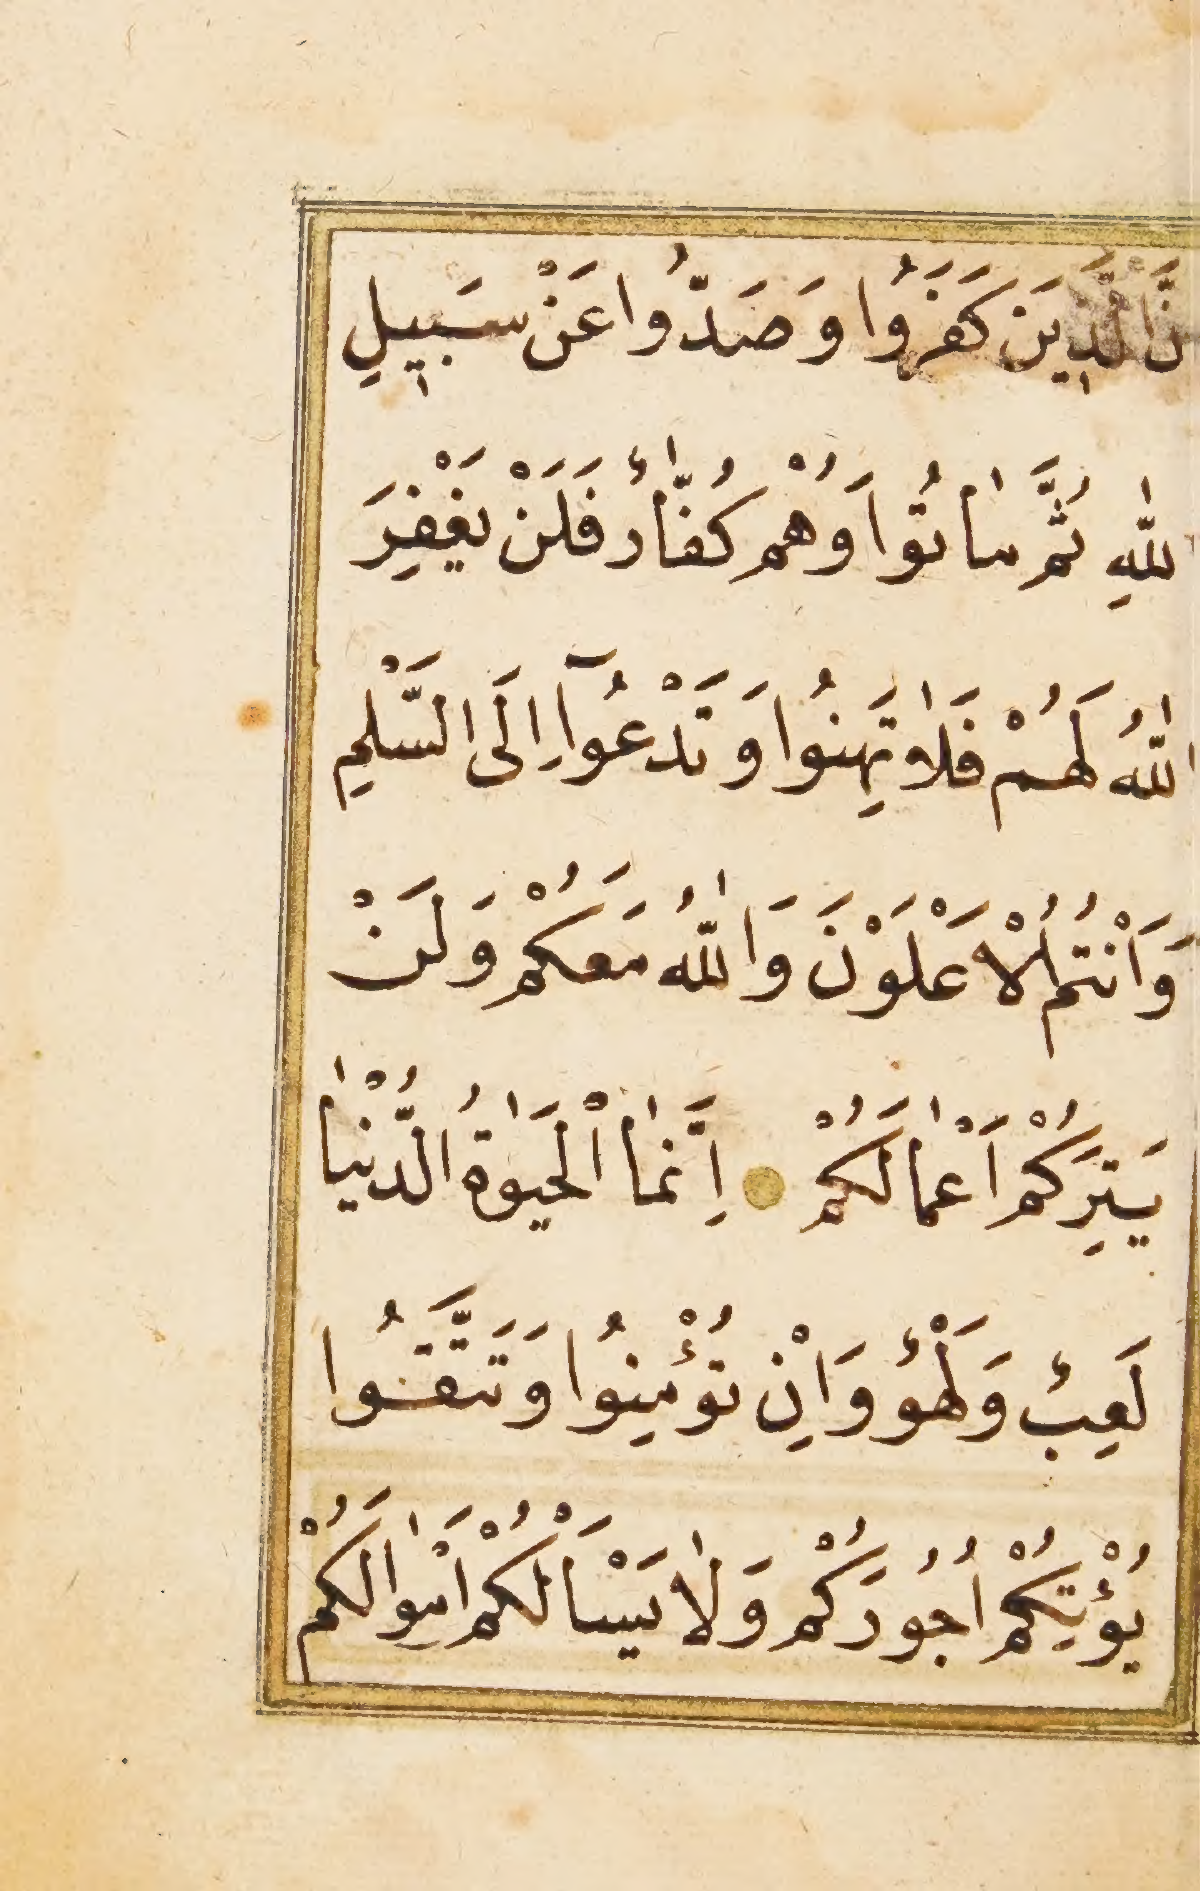 نَّ الَّذٖينَ كَفَرُوا وَصَدُّوا عَنْ سَبٖيلِ
للّٰهِ ثُمَّ مٰاتُوا وَهُمْ كُفّٰارٌ فَلَنْ يَغْفِرَ
اللّٰهُ لَهُمْ فَلٰا تَهِنُوا وَتَدْعُوٓا اِلَى السَّلْمِ
وَاَنْتُمُ الْاَعْلَوْنَ وَاللّٰهُ مَعَكُمْ وَلَنْ
يَتِرَكُمْ اَعْمٰالَكُمْ ۝ اِنَّمٰا الْحَيٰوةُ الدُّنْيٰا
لَعِبٌ وَلَهْوٌ وَاِنْ تُؤْمِنُوا وَتَتَّقُوا
يُؤْتِكُمْ اُجُورَكُمْ وَلٰا يَسْاَلْكُمْ اَمْوٰالَكُمْ